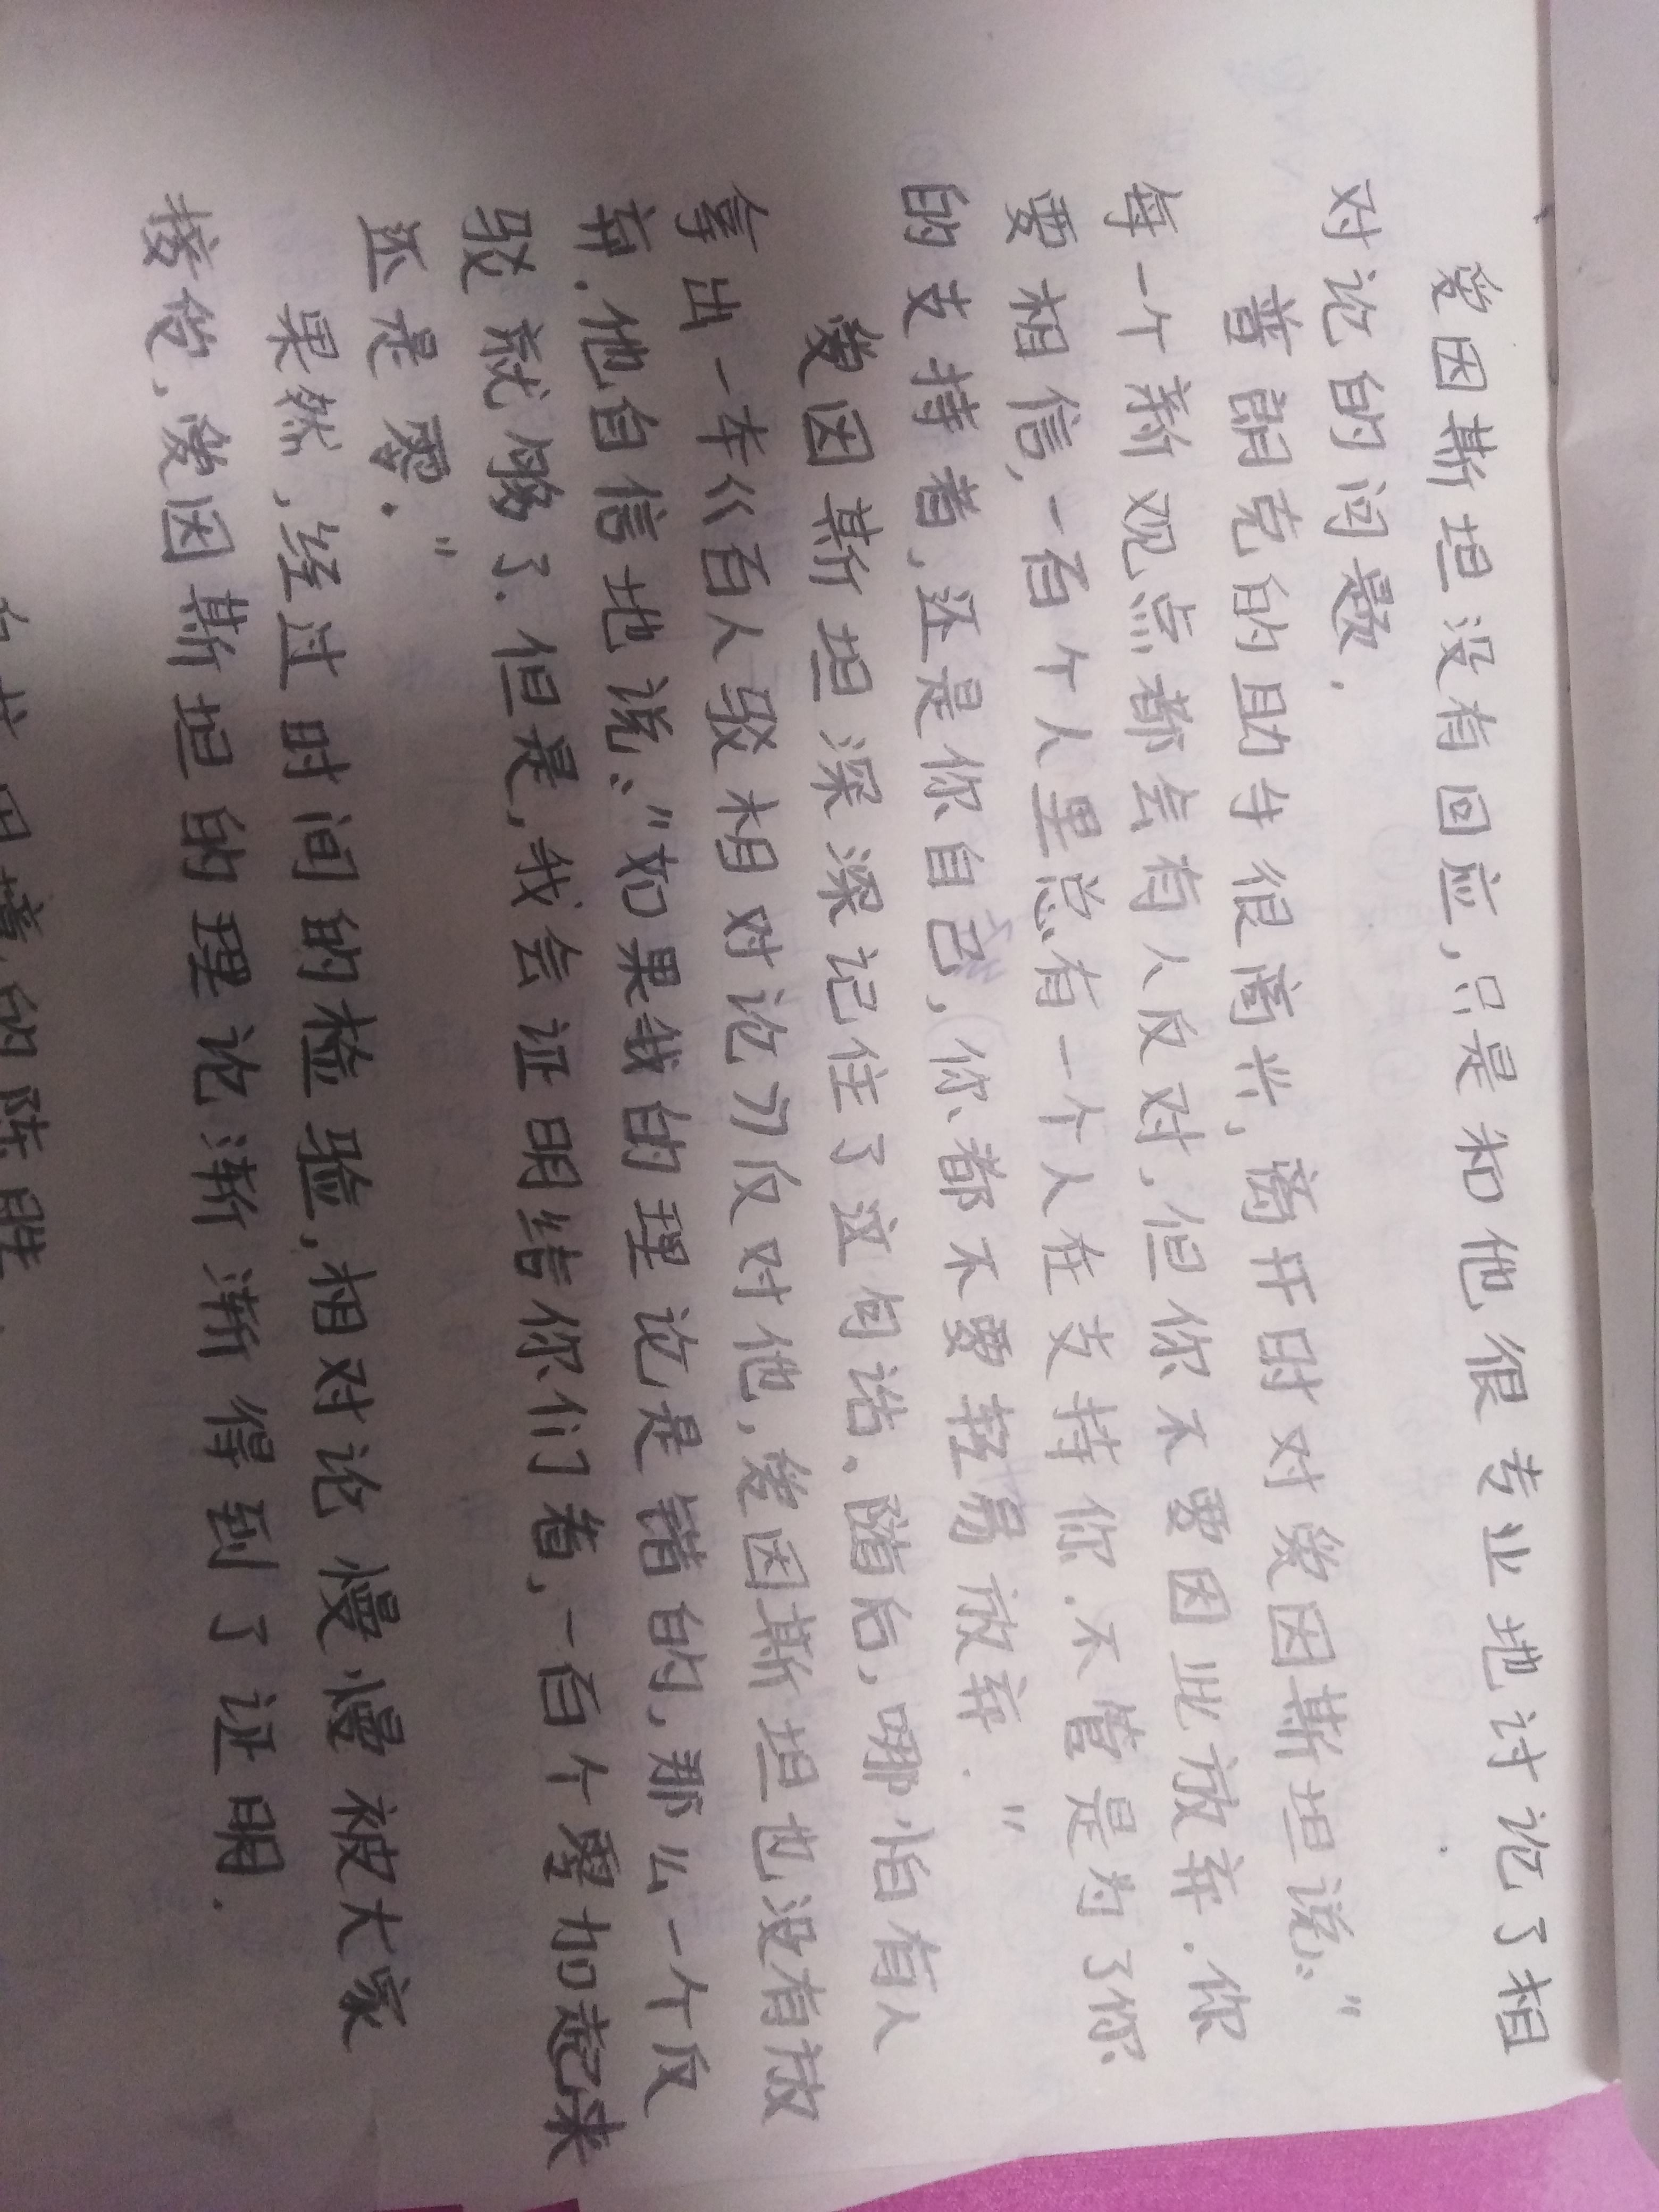 爱因斯坦没有回应,只是和他很专业地讨论了相
对论的问题.
普朗克的助手很高兴,离开时对爱因斯坦说:“
每一个新观点都会有人反对,但你不要因此放弃.你
要相信,一百个人里总有一个人在支持你.不管是为了你
的支持者,还是你自己,你都不要轻易放弃.”
爱因斯坦深深记住了这句话。随后,哪怕有人
拿出一本《百人驳相对论》反对他,爱因斯坦也没有放
弃.他自信地说:“如果我的理论是错的,那么一个反
驳就够了.但是,我会证明给你们看,一百个零加起来
还是零.”
果然,经过时间的检验,相对论慢慢被大家
接受,爱因斯坦的理论渐渐得到了证明.